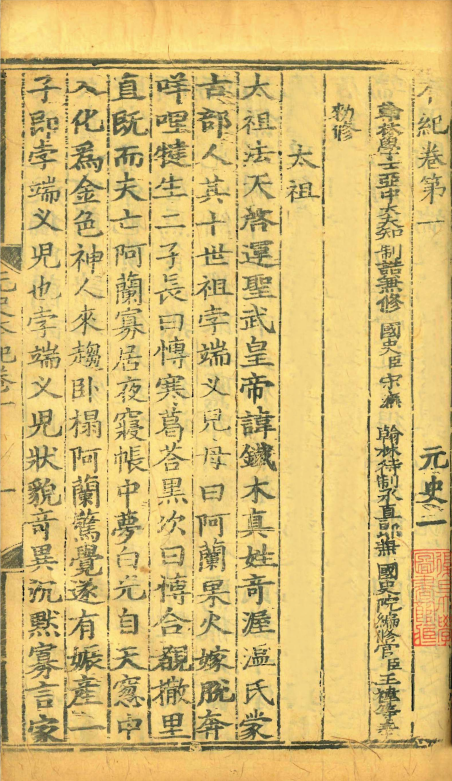 本紀卷第一 元史一
翰林學士亞中大夫知 制誥兼修 國史臣宋濂 翰林待制承直郎兼 國史院編修官臣王禕等奉
勑修
太祖
太祖法天啓運聖武皇帝諱鐵木真姓竒渥温氏蒙
古部人其十世祖孛端义兒母曰阿蘭果火嫁脫奔
咩哩犍生二子長曰慱寒葛荅黑次曰慱合覩撒里
直旣而夫亡阿蘭寡居夜寢帳中夢白光自天窻中
入化爲金色神人來趨卧榻阿蘭驚覺遂有娠產一
子即孛端义兒也孛端义兒狀貌竒異沉默寡言家
元史本紀卷一 一